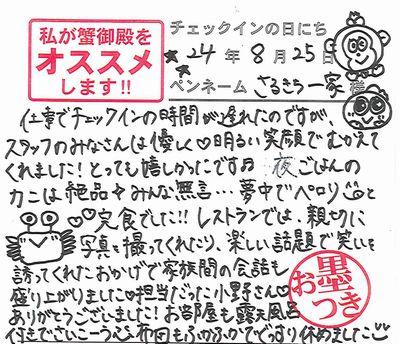 私が蟹御殿を
オススメ
します!!
チェックインの日にち
24年8月25日
ペンネーム さるきち一家 様
仕事でチェックインの時間が遅れたのですが、
スタッフのみなさんは優しく♡明るい笑顔でむかえて
くれました!とっても嬉しかったです♬ 夜ごはんの
カニは絶品々みんな無言…夢中でペロリと
♡♡完食でした!!レストランでは、親切に
写真を撮ってくれたり、楽しい話題で笑いを
誘ってくれたおかげで家族間の会話も
盛り上がりました♡担当だった小野さん♡
ありがとうございました!お部屋も露天風呂
付きでさいこーう♨布団もふかふかでぐっすり休めました
お墨つき